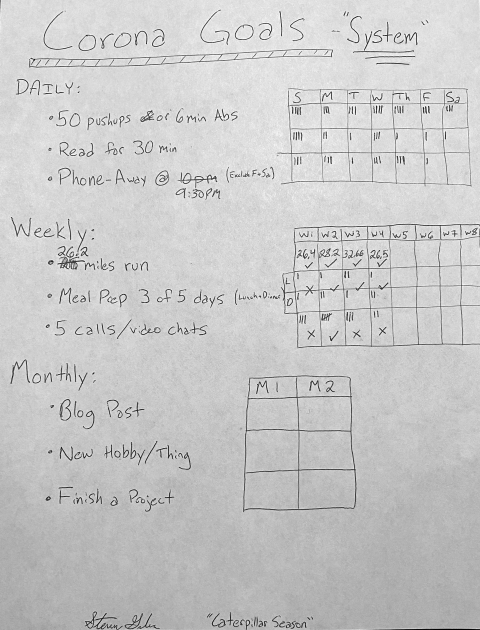 Corona Goals - "System"
DAILY:
• 50 pushups or 6 min Abs
• Read for 30 min
• Phone-Away @ 10pm (Exclude F+Sa)
9:30PM
S M T W Th F Sa
Weekly:
26.2
• miles run
• Meal Prep 3 of 5 days (Lunch+Dinner)
• 5 calls/video chats
W1 W2 W3 W4 W5 W6 W7 W8
26.4 28.2 32.66 26.5
✓ ✓ ✓ ✓
L
x ✓ ✓ ✓
D
x ✓ x x
Monthly:
• Blog Post
• New Hobby/Thing
• Finish a Project
M1 M2
"Caterpillar Season"